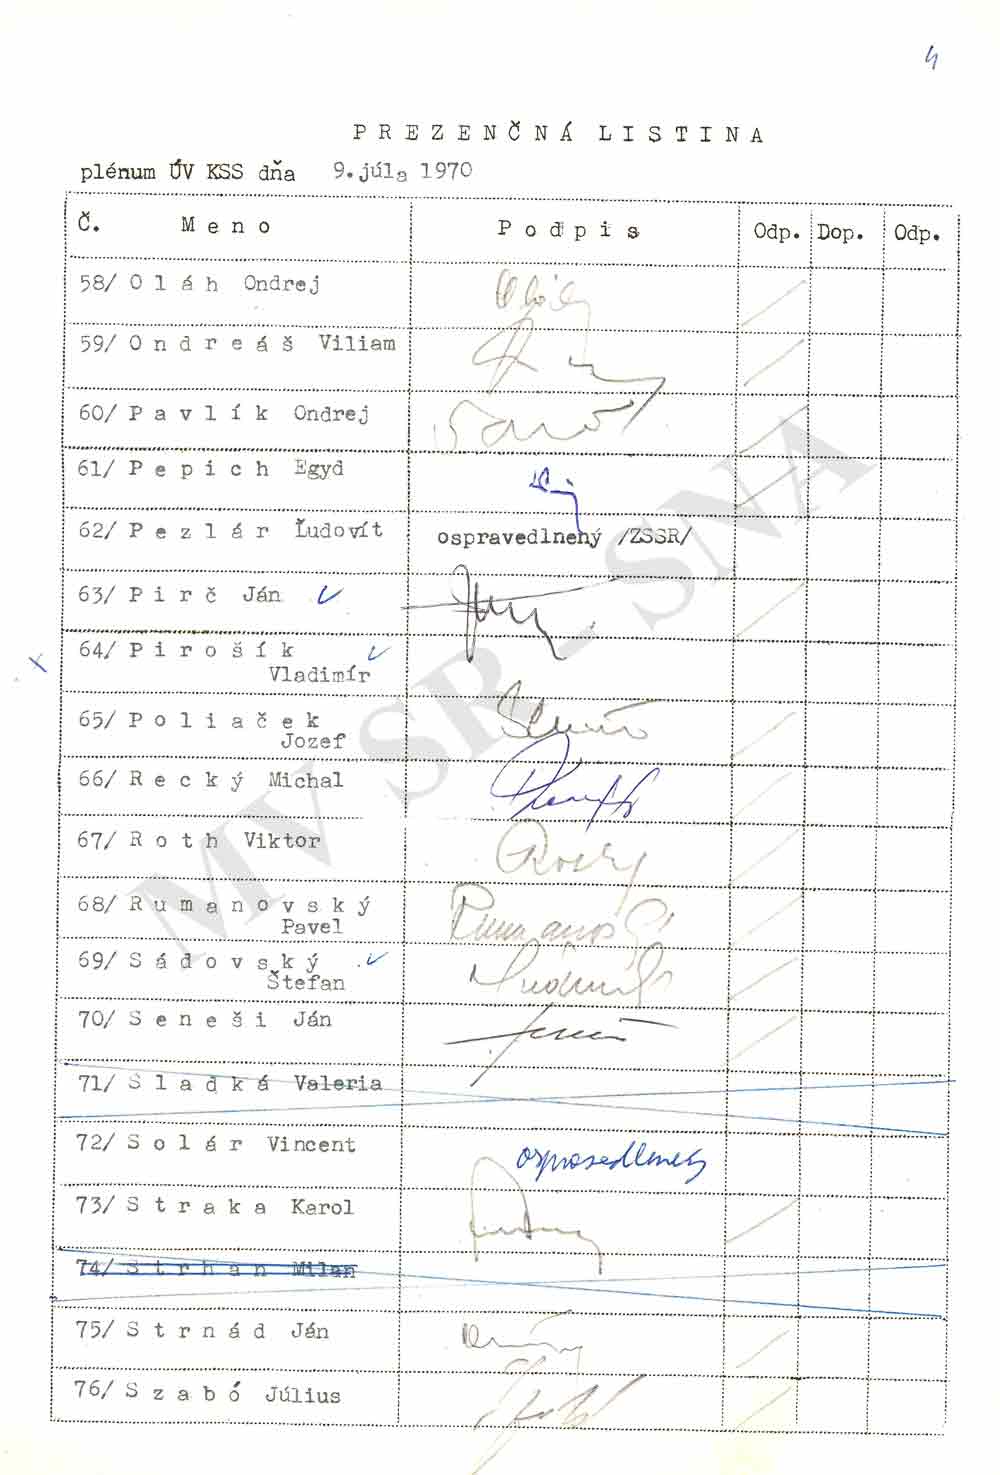 4
P R E Z E N Č N Á L I S T I N A
plénum ÚV KSS dňa 9. júla 1970
Č. M e n o P o d p i s Odp. Dop. Odp.
58/ O l á h Ondrej
59/ O n d r e á š Viliam
60/ P a v l í k Ondrej
61/ P e p i c h Egyd
62/ P e z l á r Ľudovít ospravedlnený /ZSSR/
63/ P i r č Ján
64/ P i r o š í k
Vladimír
65/ P o l i a č e k
Jozef
66/ R e c k ý Michal
67/ R o t h Viktor
68/ R u m a n o v s k ý
Pavel
69/ S á d o v s k ý
Štefan
70/ S e n e š i Ján
71/ S l a d k á Valeria
72/ S o l á r Vincent
73/ S t r a k a Karol
74/ S t r h a n Milan
75/ S t r n á d Ján
76/ S z a b ó Július
MV SR - SNA